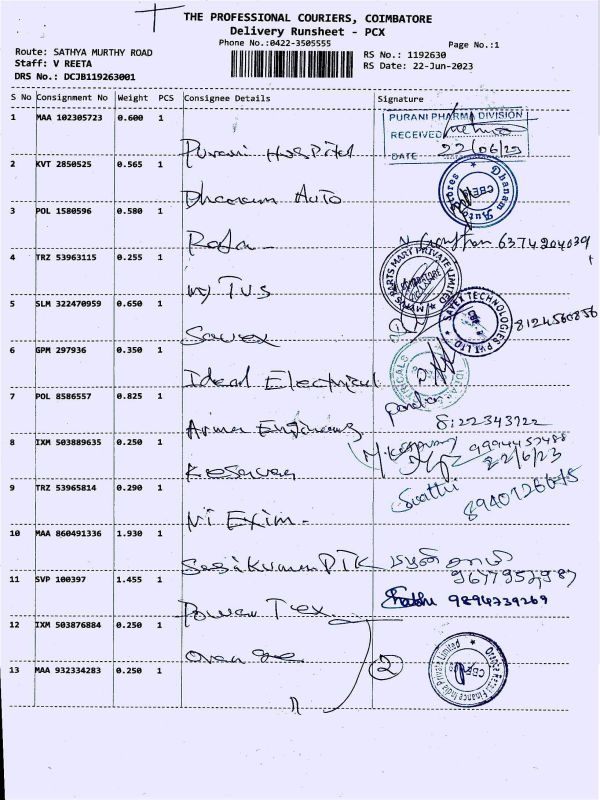 THE PROFESSIONAL COURIERS, COIMBATORE
Delivery Runsheet - PCX
Phone No.:0422-3505555
Page No.:1
Route: SATHYA MURTHY ROAD
RS No.: 1192630
Staff: V REETA
RS Date: 22-Jun-2023
DRS No.: DCJB119263001
S No Consignment No Weight PCS Consignee Details Signature
1 MAA 102305723 0.600 1
PURANI PHARMA DIVISION
RECEIVED
DATE 22/06/23
Purani Hospital
2 KVT 2850525 0.565 1
Dhanam Auto
Dhanam Auto Stores
CBE
3 POL 1580596 0.580 1
Rada -
6374204039
4 TRZ 53963115 0.255 1
PARTS MART PRIVATE LIMITED
COIMBATORE
my TVS
5 SLM 322470959 0.650 1
SAYET TECHNOLOGIES PVT LTD
8124560856
Savex
6 GPM 297936 0.350 1
Ideal Electrical
7 POL 8586557 0.825 1
8122343722
8 IXM 503889635 0.250 1
22/6/23
Kesavan
9 TRZ 53965814 0.290 1
Swathi
Ni Exim -
10 MAA 860491336 1.930 1
Sasikumar PTK
11 SVP 100397 1.455 1
9894739269
Power Tex
12 IXM 503876884 0.250 1
Orange
2
Orange Retail Finance India Private Limited
CBE
13 MAA 932334283 0.250 1